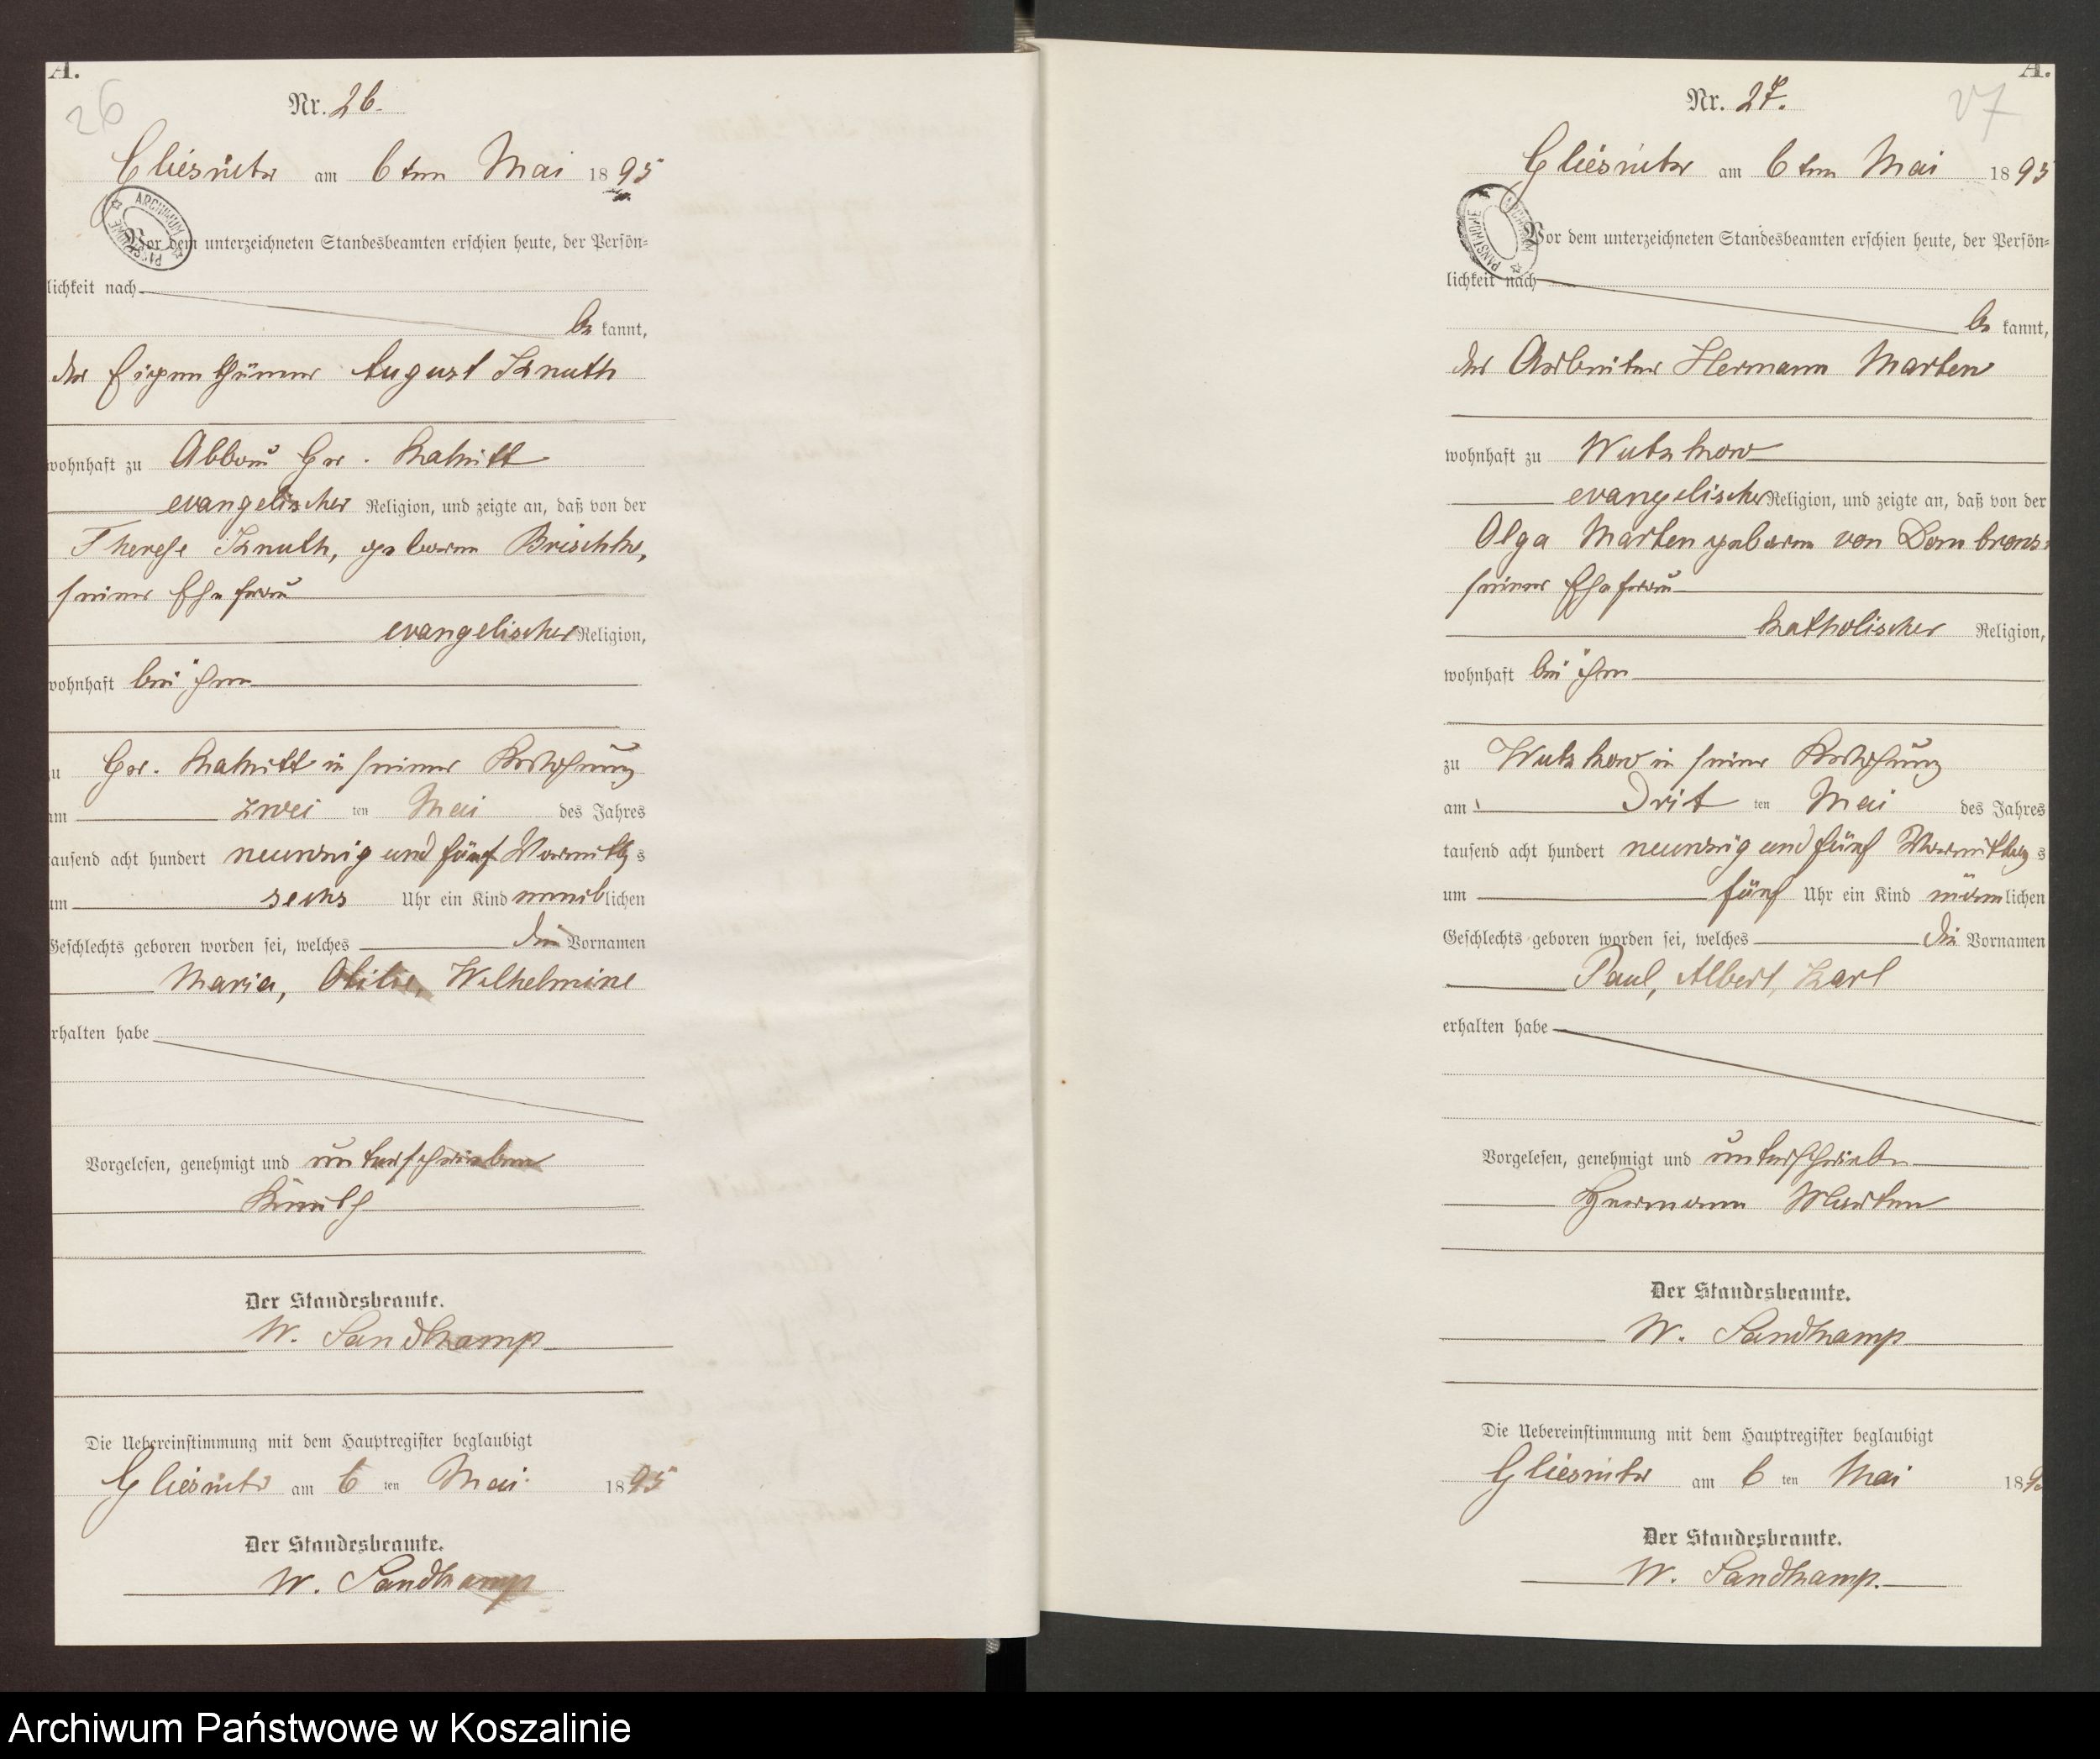 A.
26
Nr. 26.
Gliesnitz am 6ten Mai 1895
ARCHIWUM PAŃSTWOWE
Vor dem unterzeichneten Standesbeamten erschien heute, der Persön=
lichkeit nach
be kannt,
der Eigenthümer August Knuth
wohnhaft zu Abbau Gr.
evangelischer Religion, und zeigte an, daß von der
Therese Knuth, geborene Brischke,
seiner Ehefrau
evangelischer Religion,
wohnhaft bei ihm
zu Gr. in seiner Behausung
am zwei ten Mai des Jahres
tausend acht hundert neunzig und fünf Vormittags
um sechs Uhr ein Kind weiblichen
Geschlechts geboren worden sei, welches die Vornamen
Maria, Otilie, Wilhelmine
erhalten habe
Vorgelesen, genehmigt und unterschrieben
Knuth
Der Standesbeamte.
W. Sandkamp
Die Uebereinstimmung mit dem Hauptregister beglaubigt
Gliesnitz am 6 ten Mai 1895
Der Standesbeamte.
W. Sandkamp
A.
27
Nr. 27.
Gliesnitz am 6ten Mai 1895
ARCHIWUM PAŃSTWOWE
Vor dem unterzeichneten Standesbeamten erschien heute, der Persön=
lichkeit nach
be kannt,
der Arbeiter Hermann Marten
wohnhaft zu Wutzkow
evangelischer Religion, und zeigte an, daß von der
Olga Marten geborene von Dombrows=
seiner Ehefrau
katholischer Religion,
wohnhaft bei ihm
zu Wutzkow in seiner Behausung
am Drit ten Mai des Jahres
tausend acht hundert neunzig und fünf Vormittags
um fünf Uhr ein Kind männlichen
Geschlechts geboren worden sei, welches die Vornamen
Paul, Albert, Karl
erhalten habe
Vorgelesen, genehmigt und unterschrieben
Hermann Marten
Der Standesbeamte.
W. Sandkamp
Die Uebereinstimmung mit dem Hauptregister beglaubigt
Gliesnitz am 6 ten Mai 189
Der Standesbeamte.
W. Sandkamp.
Archiwum Państwowe w Koszalinie